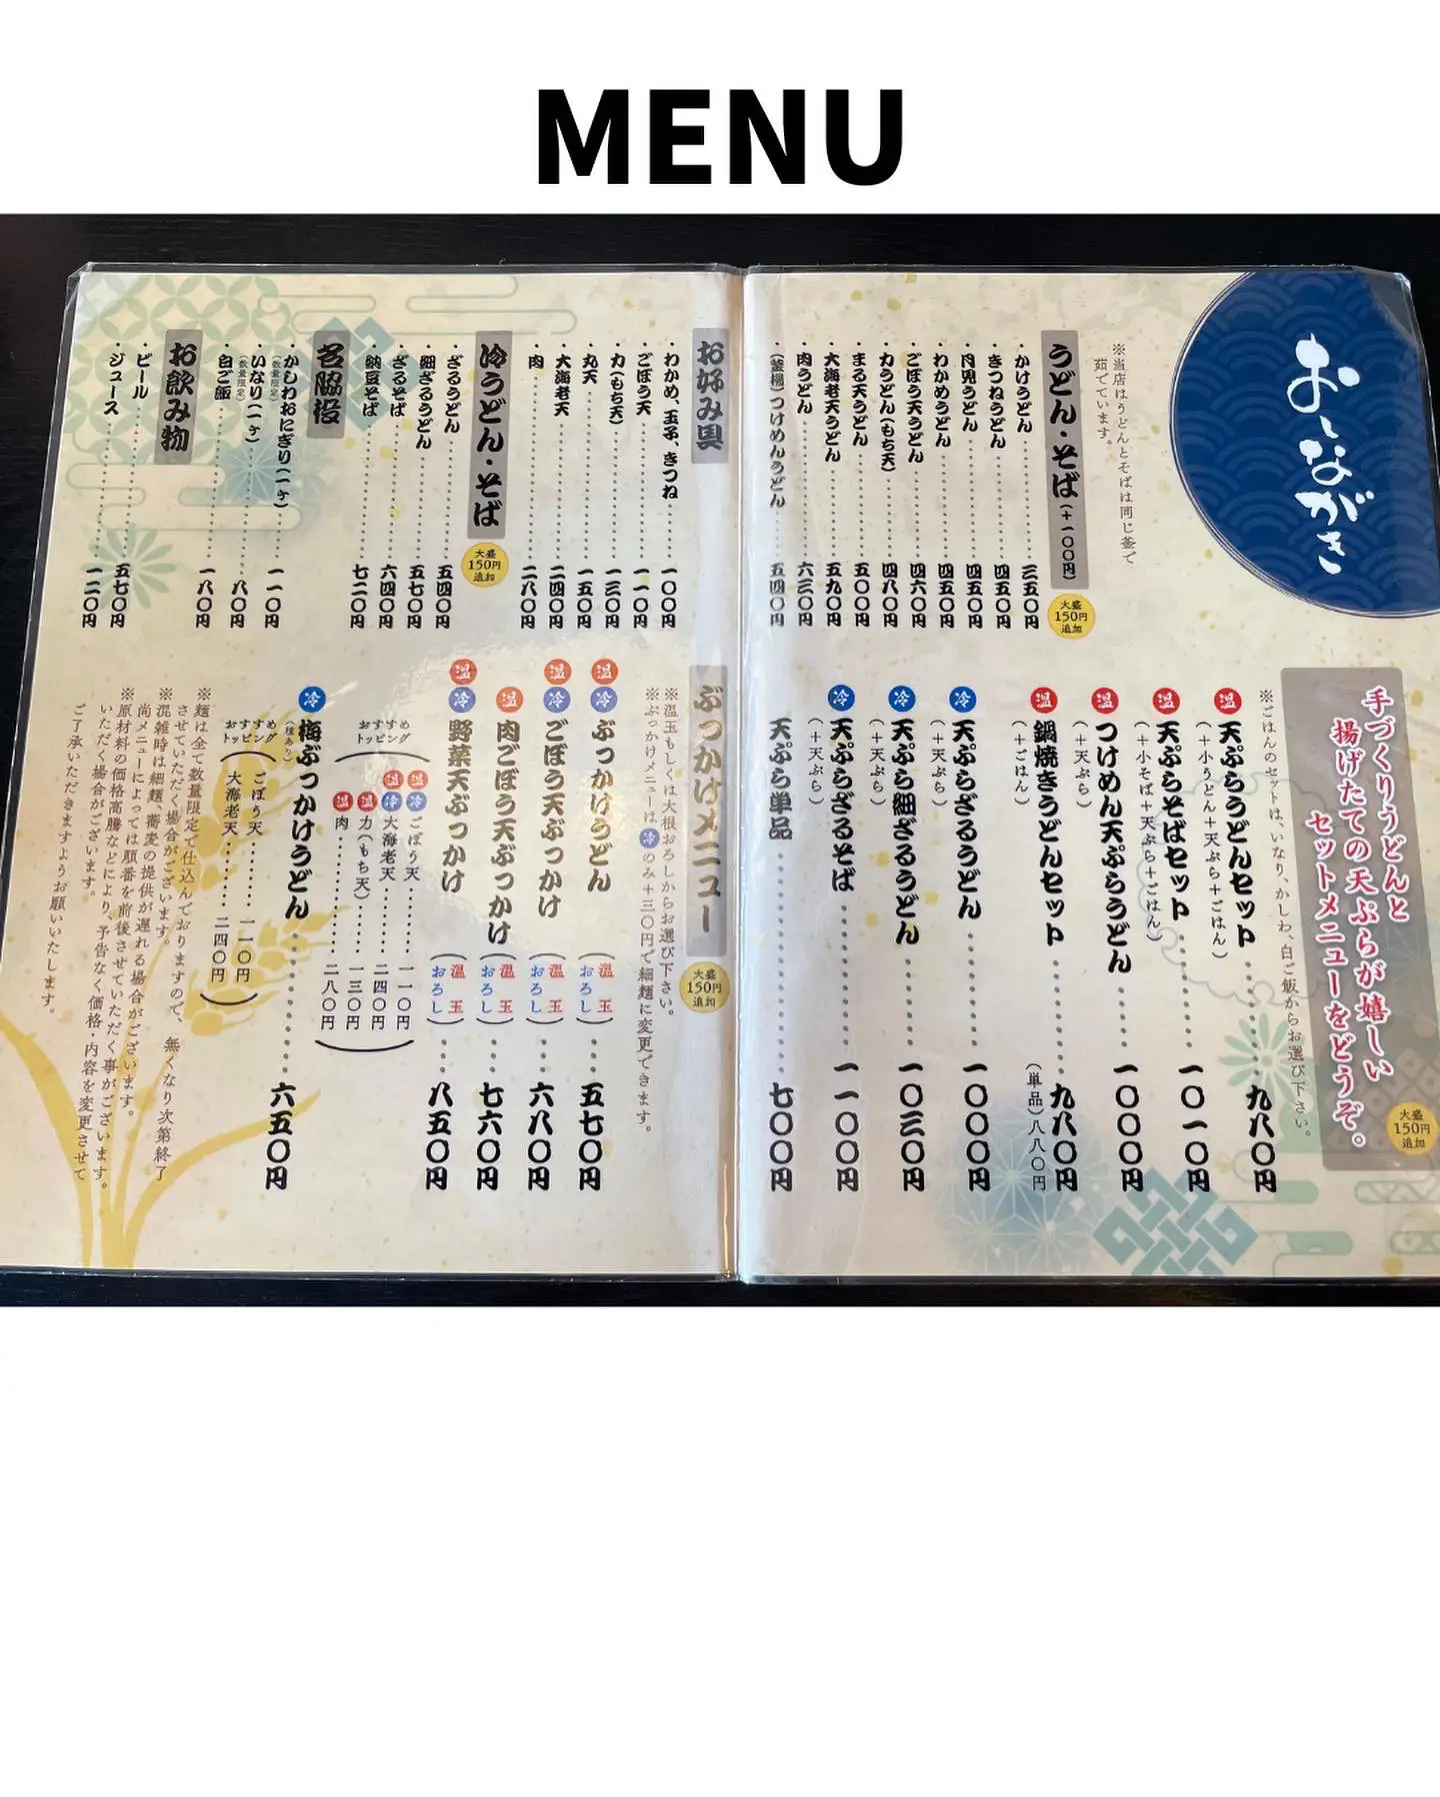 MENU
おしながき
※当店はうどんとそばは同じ釜で
茹でています。
うどん・そば(+一〇〇円)
大盛
150円
追加
かけうどん 三五〇円
きつねうどん 四五〇円
月見うどん 四五〇円
わかめうどん 四五〇円
ごぼう天うどん 四六〇円
力うどん(もち天) 四八〇円
まる天うどん 五〇〇円
大海老天うどん 五九〇円
肉うどん 六三〇円
(釜揚)つけめんうどん 五四〇円
手づくりうどんと
揚げたての天ぷらが嬉しい
セットメニューをどうぞ。
大盛
150円
追加
※ごはんのセットは、いなり、かしわ、白ご飯からお選び下さい。
温 天ぷらうどんセット 九八〇円
(+小うどん+天ぷら+ごはん)
温 天ぷらそばセット 一〇一〇円
(+小そば+天ぷら+ごはん)
温 つけめん天ぷらうどん 一〇〇〇円
(+天ぷら)
温 鍋焼きうどんセット 九八〇円
(+ごはん) (単品)八八〇円
冷 天ぷらざるうどん 一〇〇〇円
(+天ぷら)
冷 天ぷら細ざるうどん 一〇三〇円
(+天ぷら)
冷 天ぷらざるそば 一一〇〇円
(+天ぷら)
天ぷら単品 七〇〇円
お好み具
わかめ、玉子、きつね 一〇〇円
ごぼう天 一一〇円
力(もち天) 一三〇円
丸天 一五〇円
大海老天 二四〇円
肉 二八〇円
冷うどん・そば
大盛
150円
追加
ざるうどん 五四〇円
細ざるうどん 五七〇円
ざるそば 六四〇円
納豆そば 七二〇円
名脇役
かしわおにぎり(一ヶ) 一一〇円
(数量限定)
いなり(一ヶ) 八〇円
(数量限定)
白ご飯 一八〇円
お飲み物
ビール 五七〇円
ジュース 一二〇円
ぶっかけメニュー
大盛
150円
追加
※温玉もしくは大根おろしからお選び下さい。
※ぶっかけメニューは冷のみ+三〇円で細麺に変更できます。
温 冷 ぶっかけうどん (温玉 おろし) 五七〇円
温 冷 ごぼう天ぶっかけ (温玉 おろし) 六八〇円
温 肉ごぼう天ぶっかけ (温玉 おろし) 七六〇円
温 冷 野菜天ぶっかけ (温玉 おろし) 八五〇円
おすすめ
トッピング
温 冷 ごぼう天 一一〇円
温 冷 大海老天 二四〇円
温 力(もち天) 一三〇円
温 肉 二八〇円
冷 梅ぶっかけうどん 六五〇円
(種あり)
おすすめ
トッピング
ごぼう天 一一〇円
大海老天 二四〇円
※麺は全て数量限定で仕込んでおりますので、無くなり次第終了
させていただく場合がございます。
※混雑時は細麺、蕎麦の提供が遅れる場合がございます。
尚メニューによっては順番を前後させていただく事がございます。
※原材料の価格高騰などにより、予告なく価格・内容を変更させて
いただく場合がございます。
ご了承いただきますようお願いいたします。